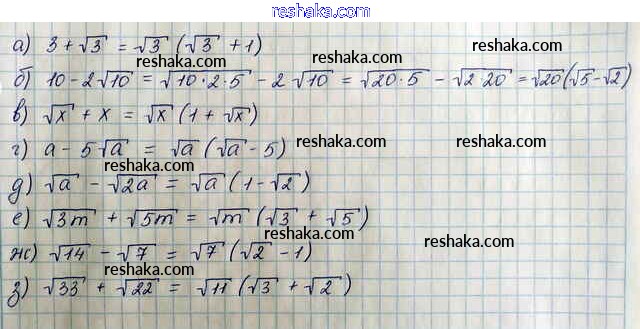 reshaka.com
а) 3 + √3 = √3 (√3 + 1)
reshaka.com
reshaka.com
б) 10 - 2√10 = √10·2·5 - 2√10 = √20·5 - √2·20 = √20(√5-√2)
в) √x + x = √x (1 + √x)
reshaka.com
г) a - 5√a = √a (√a - 5)
reshaka.com
reshaka.com
reshaka.com
д) √a - √2a = √a (1-√2)
е) √3m + √5m = √m (√3 + √5)
reshaka.com
reshaka.com
ж) √14 - √7 = √7 (√2 - 1)
reshaka.com
з) √33 + √22 = √11 (√3 + √2)
reshaka.com